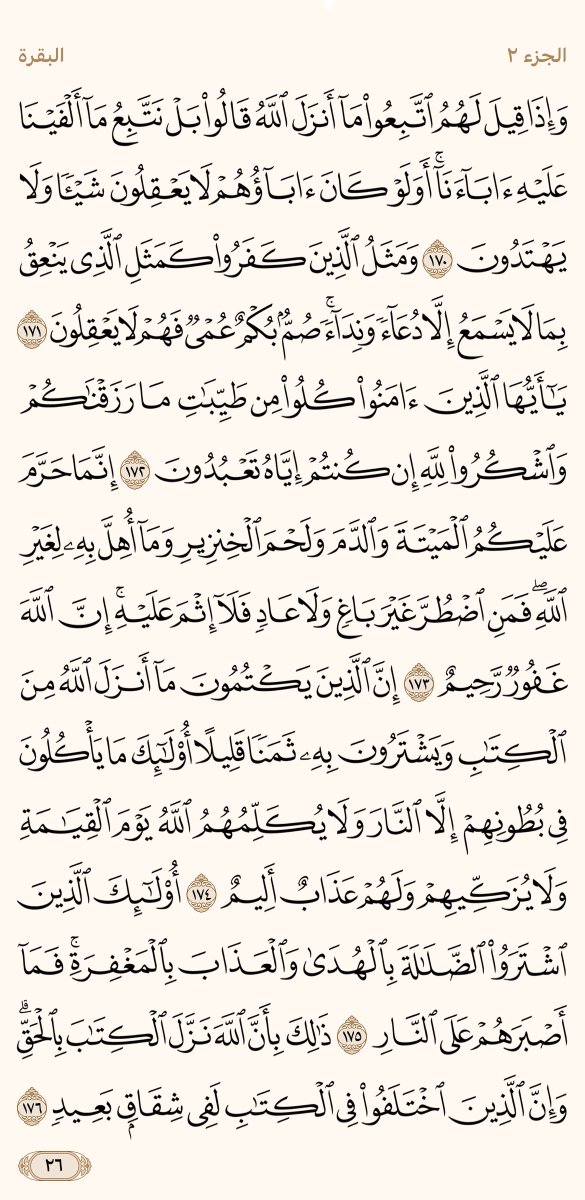 الجزء ٢ البقرة
وَإِذَا قِيلَ لَهُمُ ٱتَّبِعُوا۟ مَآ أَنزَلَ ٱللَّهُ قَالُوا۟ بَلْ نَتَّبِعُ مَآ أَلْفَيْنَا
عَلَيْهِ ءَابَآءَنَآ ۚ أَوَلَوْ كَانَ ءَابَآؤُهُمْ لَا يَعْقِلُونَ شَيْـًٔا وَلَا
يَهْتَدُونَ ١٧٠ وَمَثَلُ ٱلَّذِينَ كَفَرُوا۟ كَمَثَلِ ٱلَّذِى يَنْعِقُ
بِمَا لَا يَسْمَعُ إِلَّا دُعَآءً وَنِدَآءً ۚ صُمٌّۢ بُكْمٌ عُمْىٌ فَهُمْ لَا يَعْقِلُونَ ١٧١
يَـٰٓأَيُّهَا ٱلَّذِينَ ءَامَنُوا۟ كُلُوا۟ مِن طَيِّبَـٰتِ مَا رَزَقْنَـٰكُمْ
وَٱشْكُرُوا۟ لِلَّهِ إِن كُنتُمْ إِيَّاهُ تَعْبُدُونَ ١٧٢ إِنَّمَا حَرَّمَ
عَلَيْكُمُ ٱلْمَيْتَةَ وَٱلدَّمَ وَلَحْمَ ٱلْخِنزِيرِ وَمَآ أُهِلَّ بِهِۦ لِغَيْرِ
ٱللَّهِ ۖ فَمَنِ ٱضْطُرَّ غَيْرَ بَاغٍ وَلَا عَادٍ فَلَآ إِثْمَ عَلَيْهِ ۚ إِنَّ ٱللَّهَ
غَفُورٌ رَّحِيمٌ ١٧٣ إِنَّ ٱلَّذِينَ يَكْتُمُونَ مَآ أَنزَلَ ٱللَّهُ مِنَ
ٱلْكِتَـٰبِ وَيَشْتَرُونَ بِهِۦ ثَمَنًا قَلِيلًا أُو۟لَـٰٓئِكَ مَا يَأْكُلُونَ
فِى بُطُونِهِمْ إِلَّا ٱلنَّارَ وَلَا يُكَلِّمُهُمُ ٱللَّهُ يَوْمَ ٱلْقِيَـٰمَةِ
وَلَا يُزَكِّيهِمْ وَلَهُمْ عَذَابٌ أَلِيمٌ ١٧٤ أُو۟لَـٰٓئِكَ ٱلَّذِينَ
ٱشْتَرَوُا۟ ٱلضَّلَـٰلَةَ بِٱلْهُدَىٰ وَٱلْعَذَابَ بِٱلْمَغْفِرَةِ ۚ فَمَآ
أَصْبَرَهُمْ عَلَى ٱلنَّارِ ١٧٥ ذَٰلِكَ بِأَنَّ ٱللَّهَ نَزَّلَ ٱلْكِتَـٰبَ بِٱلْحَقِّ ۗ
وَإِنَّ ٱلَّذِينَ ٱخْتَلَفُوا۟ فِى ٱلْكِتَـٰبِ لَفِى شِقَاقٍۭ بَعِيدٍ ١٧٦
٢٦